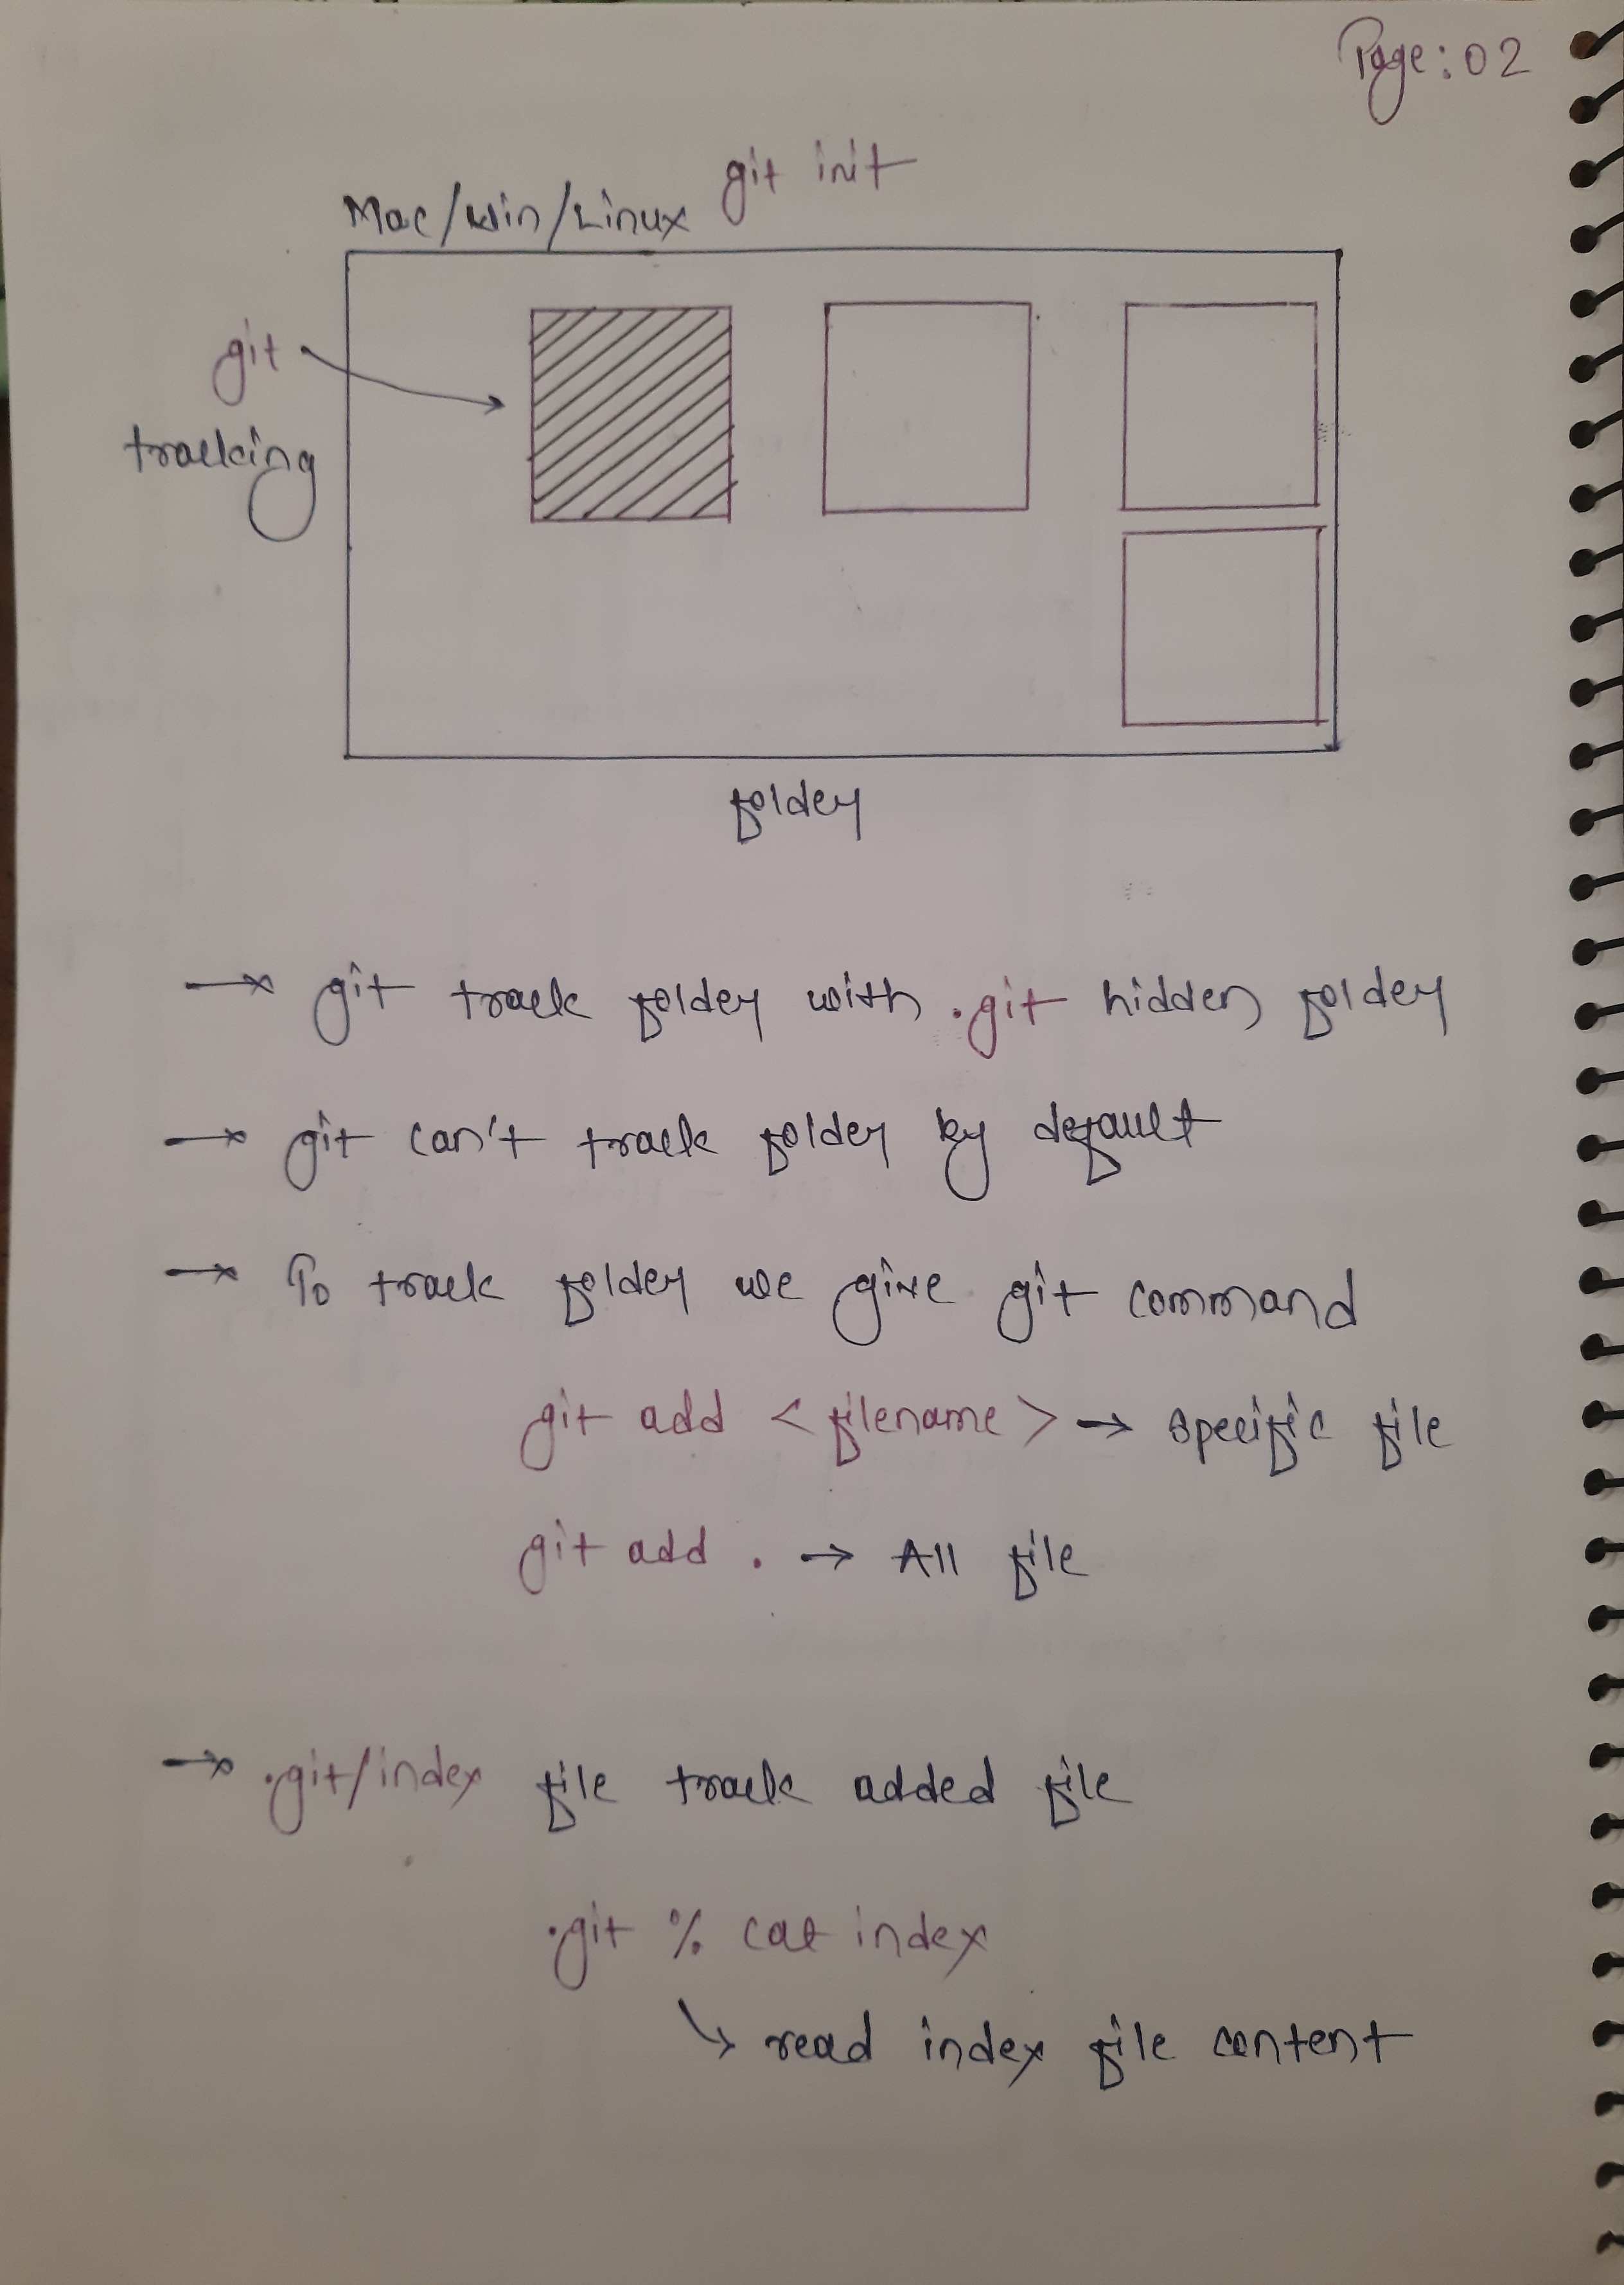 Page: 02
git init
Mac/Win/Linux
git
tracking
folder
→ git track folder with .git hidden folder
→ git can't track folder by default
→ To track folder we give git command
git add <filename> → specific file
git add . → All file
→ .git/index file track added file
.git % cat index
↳ read index file content